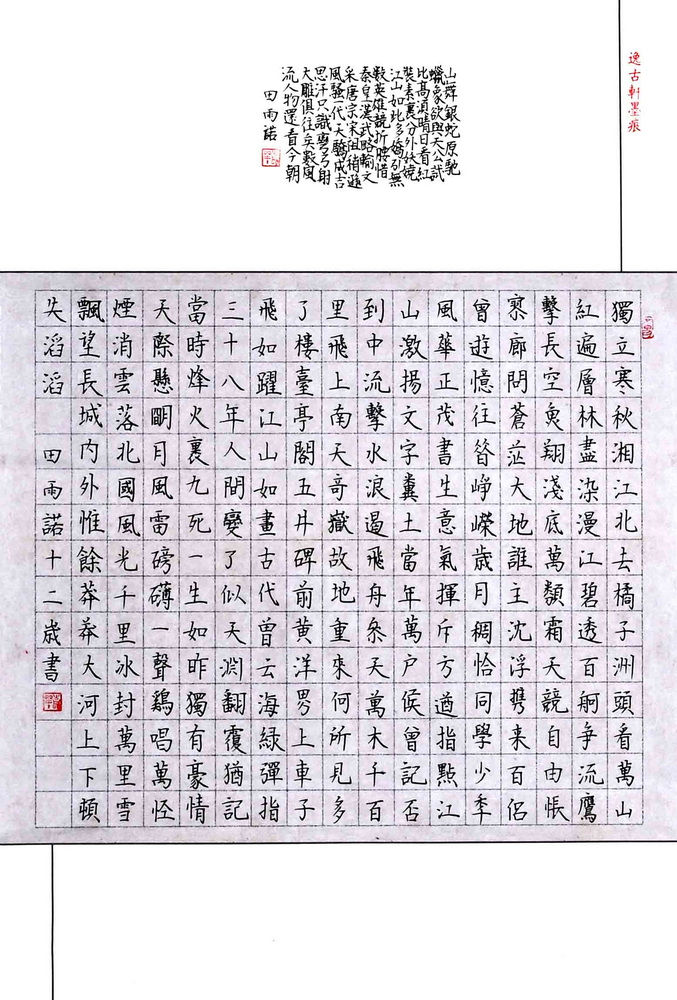 逸古軒墨痕
獨立寒秋湘江北去橘子洲頭看萬山
紅遍層林盡染漫江碧透百舸争流鷹
擊長空魚翔淺底萬類霜天競自由悵
寥廊問蒼茫大地誰主沈浮携来百侣
曾遊憶往昔崢嶸歲月稠恰同學少年
風華正茂書生意氣揮斥方遒指點江
山激揚文字糞土當年萬户侯曾記否
到中流擊水浪遏飛舟叅天萬木千百
里飛上南天奇嶽故地重來何所見多
了樓臺亭閣五井碑前黄洋界上車子
飛如躍江山如畫古代曾云海緑彈指
三十八年人間變了似天淵翻覆猶記
當時烽火裏九死一生如昨獨有豪情
天際懸朙月風雷磅礴一聲鷄唱萬怪
煙消雲落北國風光千里冰封萬里雪
飄望長城内外惟餘莽莽大河上下頓
失滔滔 田雨諾十二歲書
山舞銀蛇原馳
蠟象欲與天公試
比高須晴日看紅
裝素裹分外妖嬈
江山如此多嬌引無
數英雄競折腰惜
秦皇漢武略輸文
采唐宗宋祖稍遜
風騷一代天驕成吉
思汗只識彎弓射
大雕俱往矣數風
流人物還看今朝
田雨諾